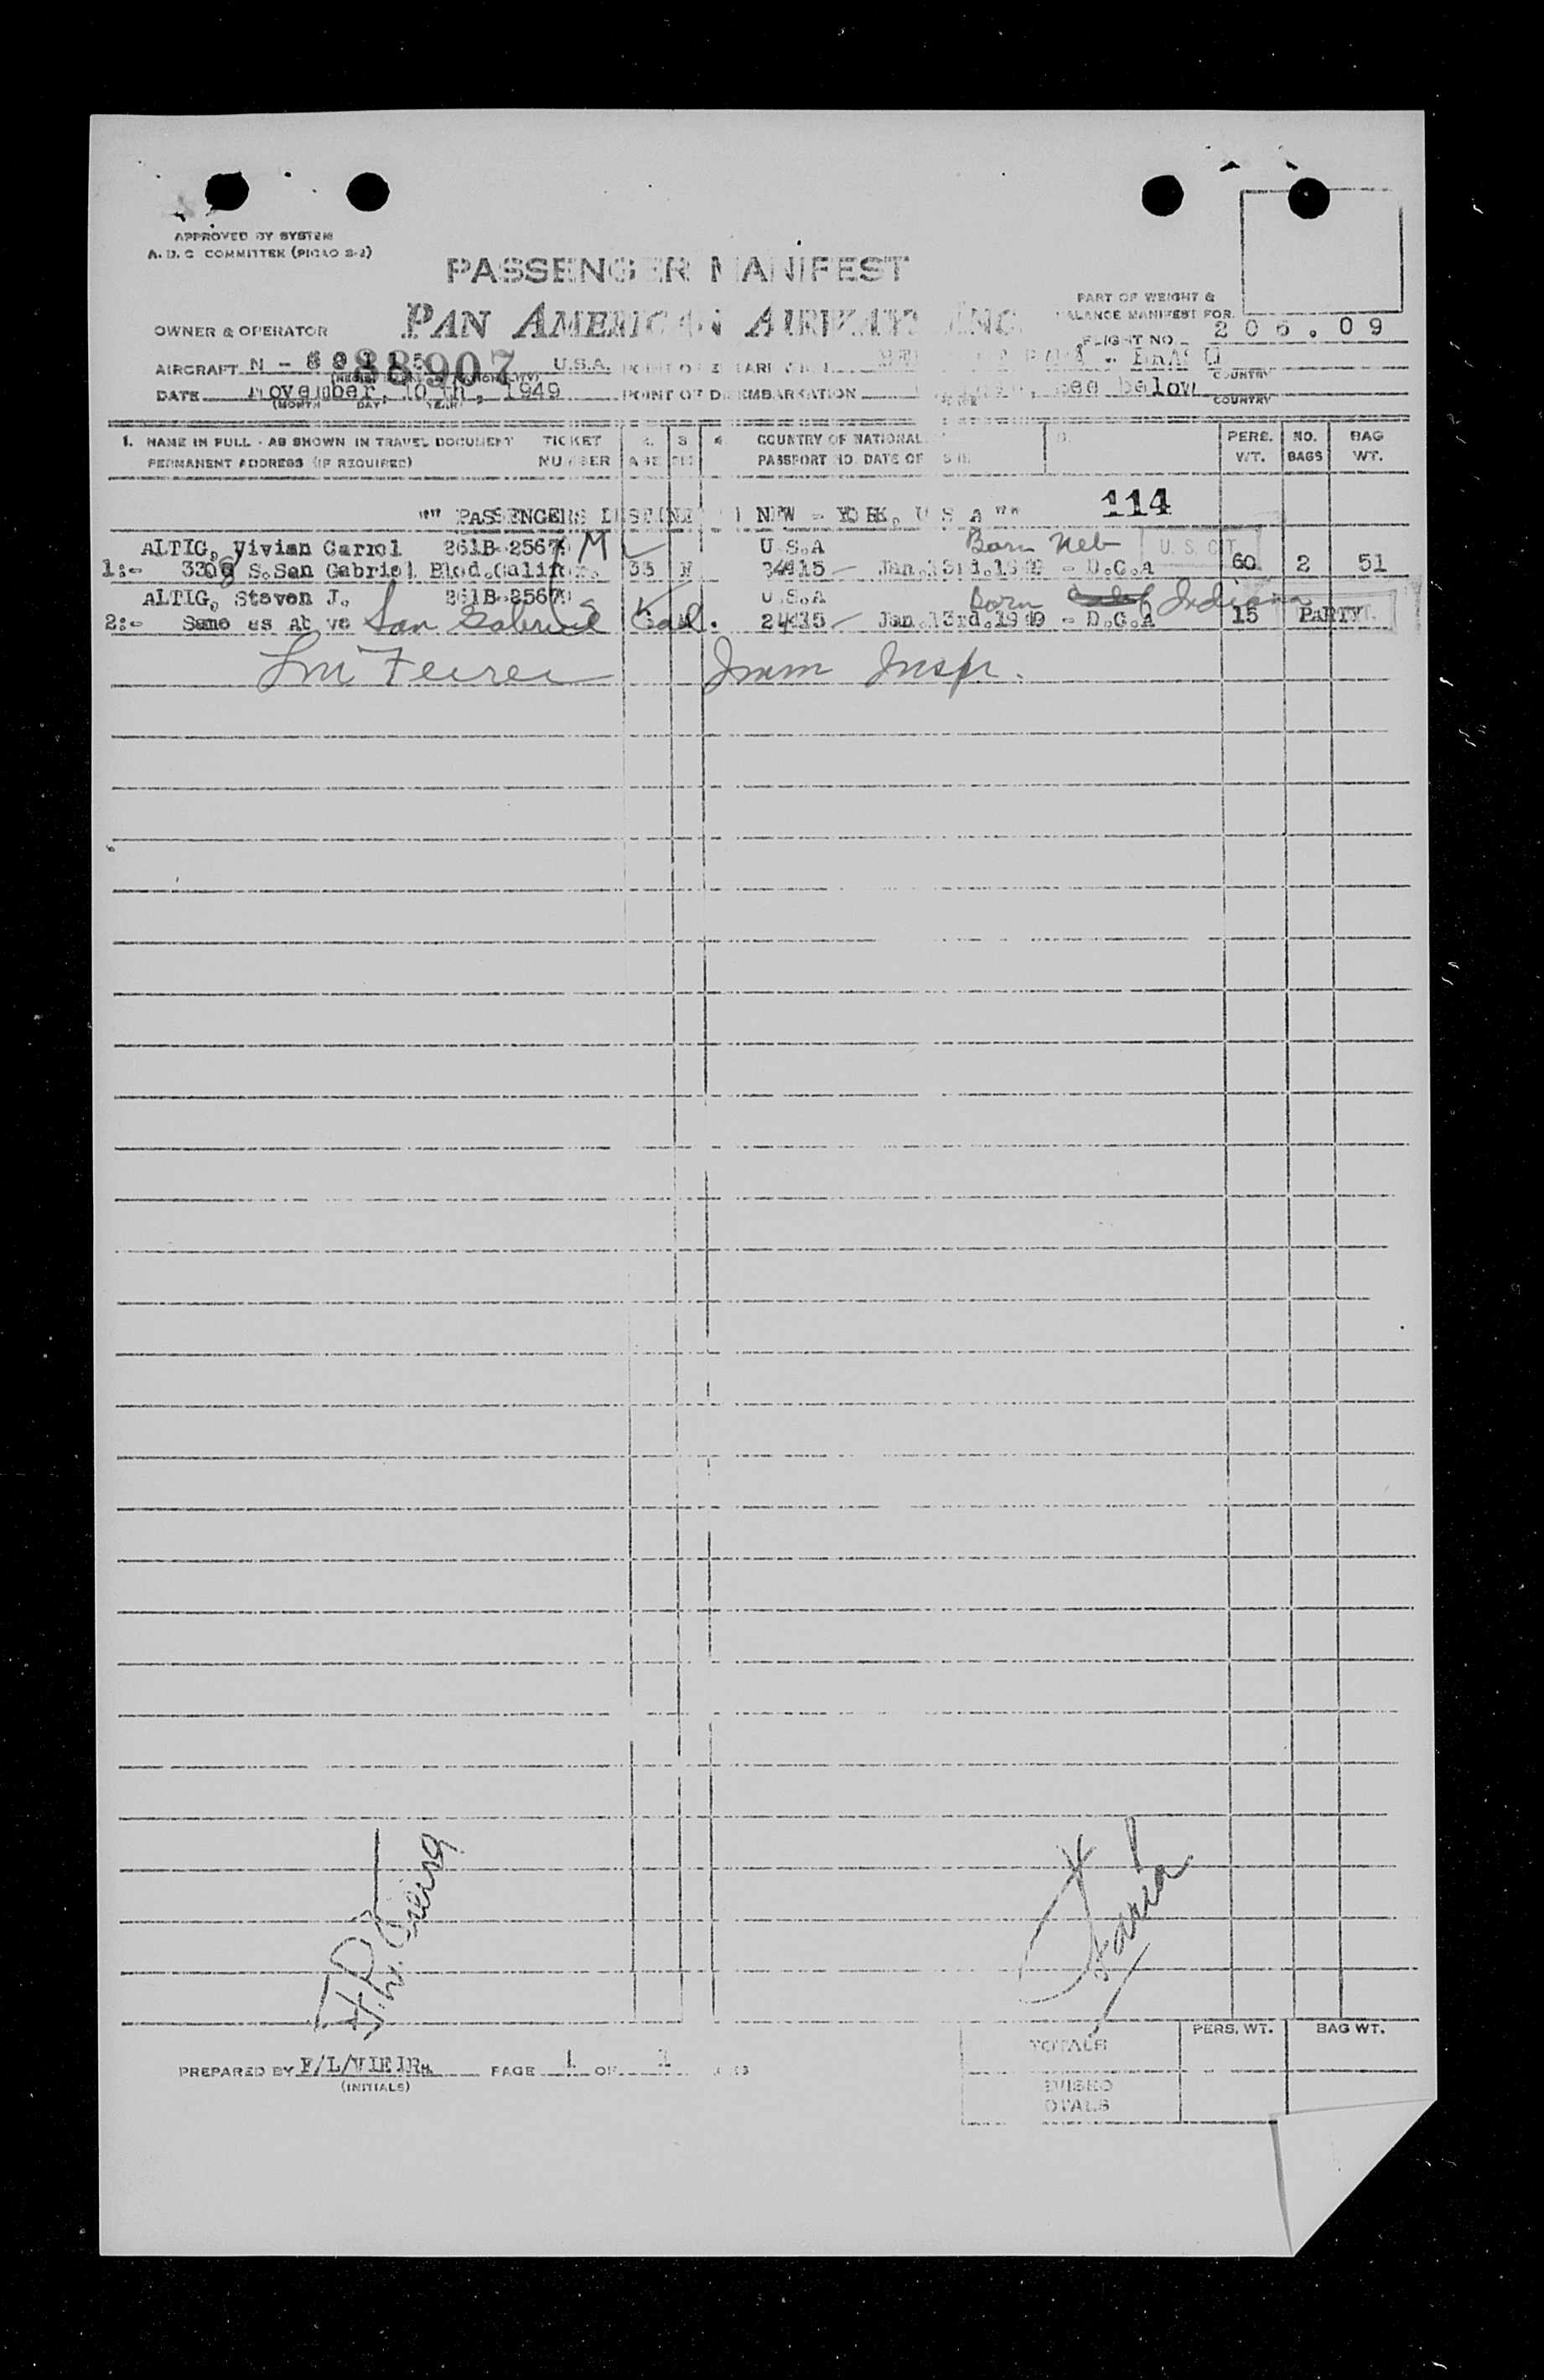 APPROVED BY SYSTEM
A. D. C COMMITTEE (PICAO S-2)
PASSENGER MANIFEST
PART OF WEIGHT &
BALANCE MANIFEST FOR
OWNER & OPERATOR PAN AMERICAN AIRWAYS INC.
FLIGHT NO. 206.09
AIRCRAFT N - 88907 U.S.A. POINT OF EMBARKATION BRASIL
COUNTRY
DATE November, 10 th, 1949 POINT OF DISEMBARKATION see below
(MONTH DAY YEAR) COUNTRY
1. NAME IN FULL - AS SHOWN IN TRAVEL DOCUMENT TICKET 2. 3 4 COUNTRY OF NATIONAL PERS. NO. BAG
PERMANENT ADDRESS (IF REQUIRED) NUMBER AGE SEX PASSPORT NO. DATE OF WT. BAGS WT.
"" PASSENGERS DESTINED NEW - YORK, U S A "" 114
ALTIG, Vivian Carrol 261B-2567 M U.S.A Born Neb U. S. CIT
1:- 3308 S.San Gabriel Blod.Califor. 35 F Jan.13rd.19 - D.C.A 60 2 51
ALTIG, Steven J. 261B-2567 U.S.A Born Indiana
2:- Same as above San Gabriel Cal. Jan.13rd.19 - D.C.A 15 PARTY
Imm Inspr.
Faria
TOTALS PERS. WT. BAG WT.
PREPARED BY F/L/VIEIRA PAGE 1 OF 1
(INITIALS)
REVISED
TOTALS